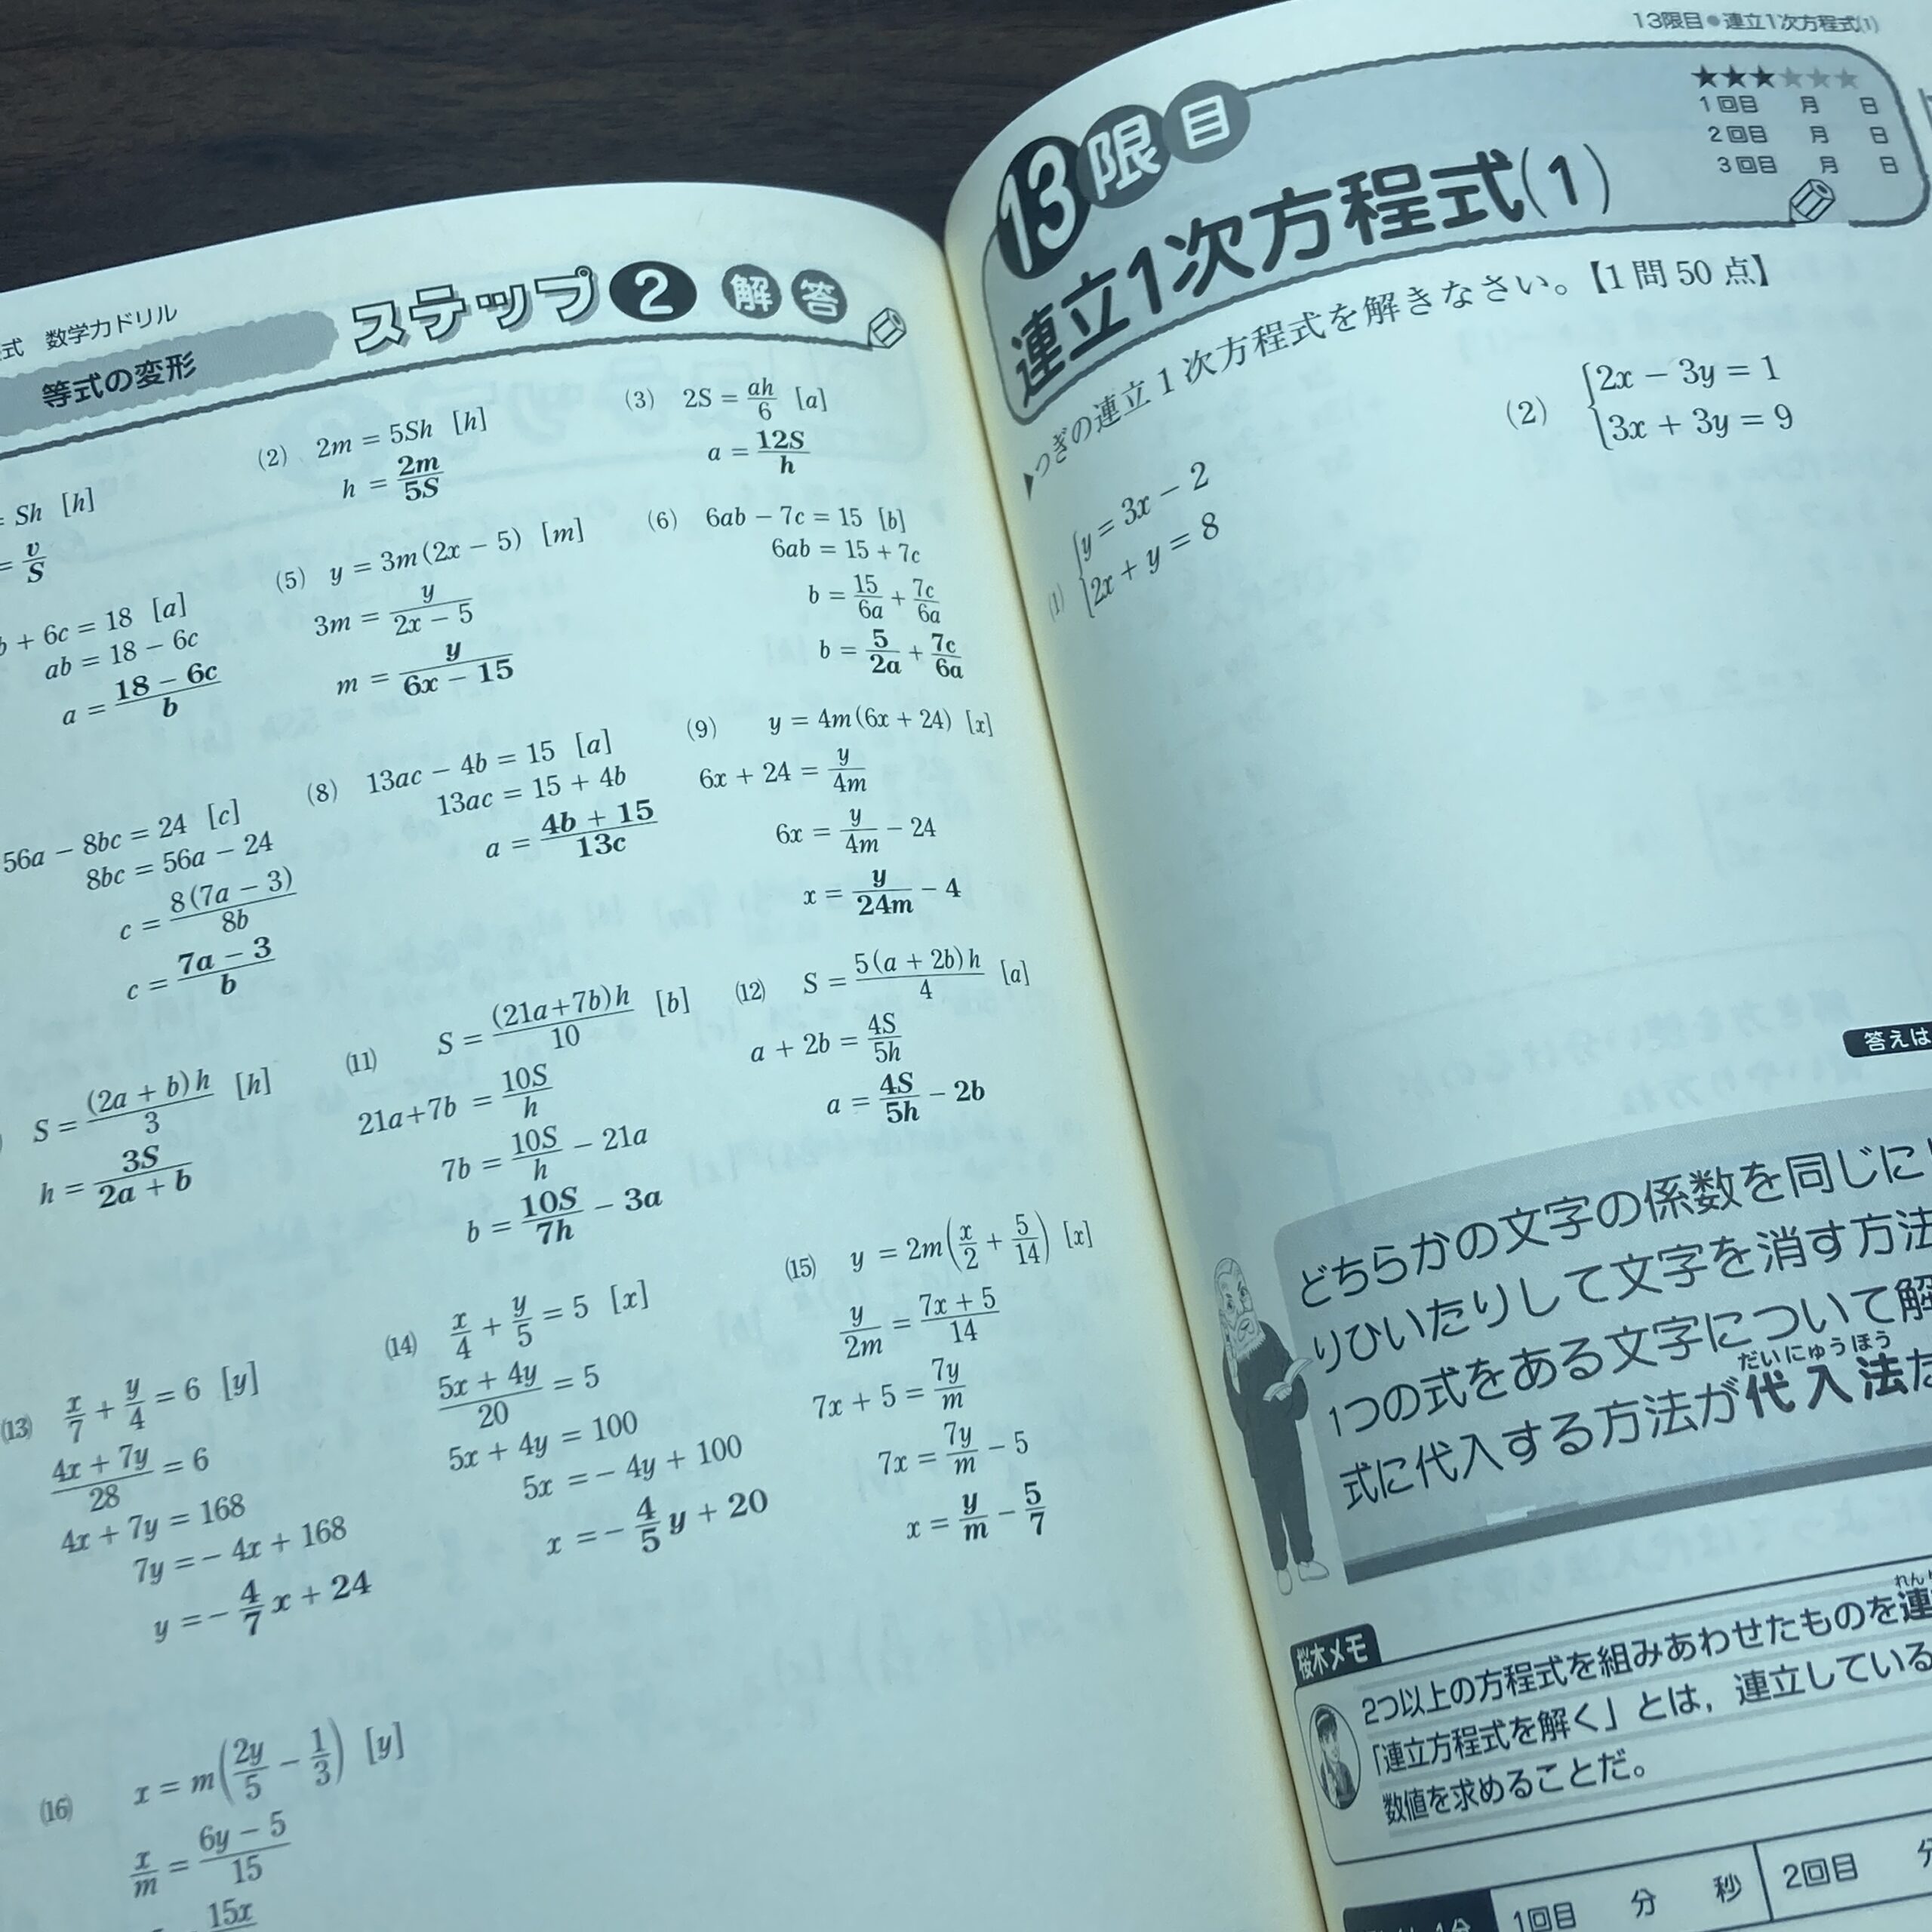 式 数学力ドリル
等式の変形
ステップ2 解答
= Sh [h]
= v/S
(2) 2m = 5Sh [h]
h = 2m/5S
(3) 2S = ah/6 [a]
a = 12S/h
b + 6c = 18 [a]
ab = 18 − 6c
a = (18 − 6c)/b
(5) y = 3m(2x − 5) [m]
3m = y/(2x − 5)
m = y/(6x − 15)
(6) 6ab − 7c = 15 [b]
6ab = 15 + 7c
b = 15/6a + 7c/6a
b = 5/2a + 7c/6a
56a − 8bc = 24 [c]
8bc = 56a − 24
c = 8(7a − 3)/8b
c = (7a − 3)/b
(8) 13ac − 4b = 15 [a]
13ac = 15 + 4b
a = (4b + 15)/13c
(9) y = 4m(6x + 24) [x]
6x + 24 = y/4m
6x = y/4m − 24
x = y/24m − 4
S = (2a + b)h/3 [h]
h = 3S/(2a + b)
(11) S = (21a+7b)h/10 [b]
21a+7b = 10S/h
7b = 10S/h − 21a
b = 10S/7h − 3a
(12) S = 5(a + 2b)h/4 [a]
a + 2b = 4S/5h
a = 4S/5h − 2b
(13) x/7 + y/4 = 6 [y]
(4x + 7y)/28 = 6
4x + 7y = 168
7y = − 4x + 168
y = − 4/7 x + 24
(14) x/4 + y/5 = 5 [x]
(5x + 4y)/20 = 5
5x + 4y = 100
5x = − 4y + 100
x = − 4/5 y + 20
(15) y = 2m(x/2 + 5/14) [x]
y/2m = (7x + 5)/14
7x + 5 = 7y/m
7x = 7y/m − 5
x = y/m − 5/7
(16) x = m(2y/5 − 1/3) [y]
x/m = (6y − 5)/15
15x
13限目●連立1次方程式(1)
★★★★★★
1回目 月 日
2回目 月 日
3回目 月 日
13限目
連立1次方程式(1)
▶つぎの連立1次方程式を解きなさい。【1問50点】
(1) {y = 3x − 2
2x + y = 8
(2) {2x − 3y = 1
3x + 3y = 9
答えは
どちらかの文字の係数を同じに
りひいたりして文字を消す方法
1つの式をある文字について解
だいにゅうほう
式に代入する方法が代入法だ
桜木メモ
れん
2つ以上の方程式を組みあわせたものを連
「連立方程式を解く」とは，連立している
数値を求めることだ。
1回目 分 秒 2回目 分